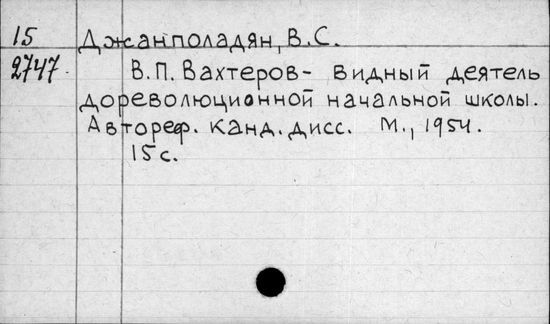 15 Джанполадян, В.С.
2747. В.П. Вахтеров- видный деятель
дореволюционной начальной школы.
Автореф. канд. дисс. М., 1954.
15 с.